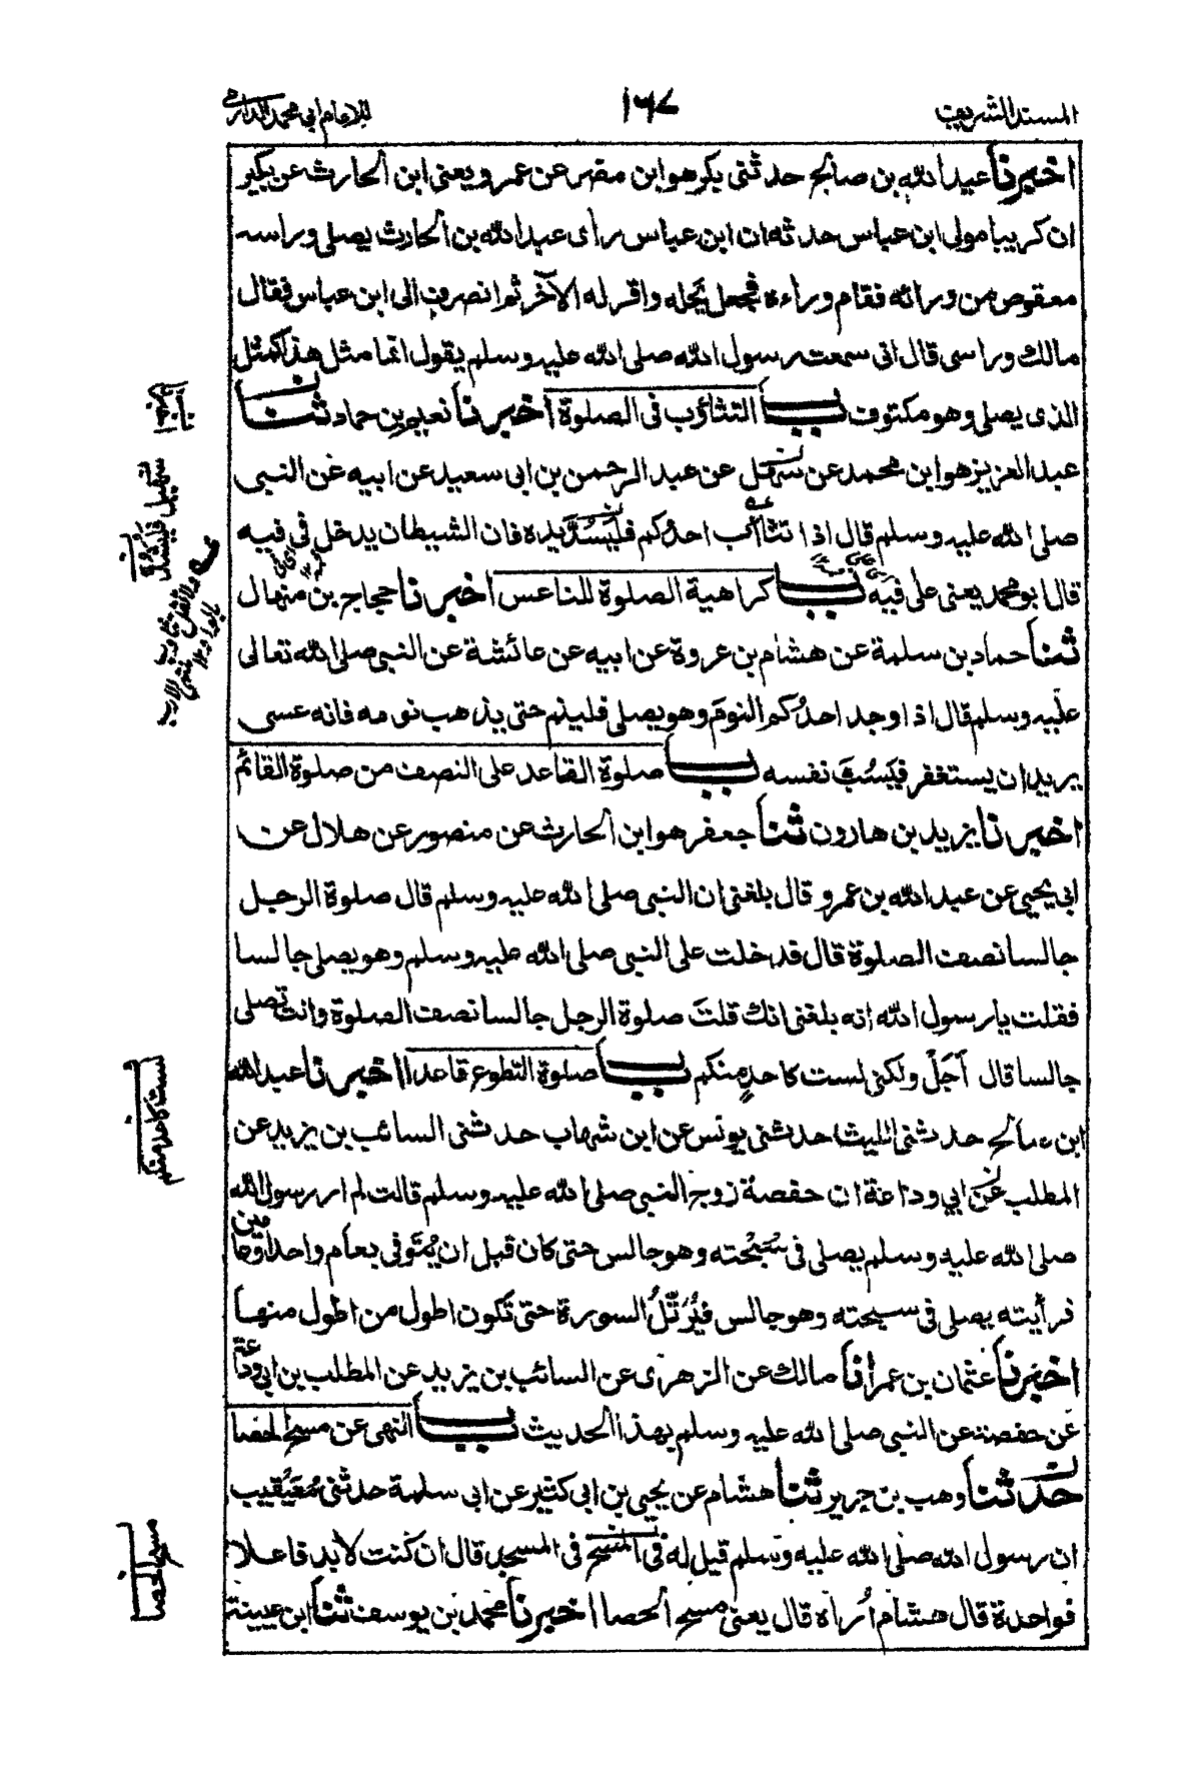 المسند الشريف
١٦٧
للامام ابى محمد الدارمى
اخبرنا عبد الله بن صالح حدثنى بكر هو ابن مضر عن عمرو يعنى ابن الحارث عن بكير
ان كريبا مولى ابن عباس حدثه ان ابن عباس رأى عبد الله بن الحارث يصلى وراسه
معقوص من ورائه فقام وراءه فجعل يحله واقر له الآخر ثم انصرف الى ابن عباس فقال
مالك وراسى قال انى سمعت رسول الله صلى الله عليه وسلم يقول انما مثل هذا كمثل
الذى يصلى وهو مكتوف باب التثاؤب فى الصلوة اخبرنا نعيم بن حماد ثنا
عبد العزيز هو ابن محمد عن سهل عن عبد الرحمن بن ابى سعيد عن ابيه عن النبى
صلى الله عليه وسلم قال اذا تثاءب احدكم فليسد يده فان الشيطان يدخل فى فيه
قال ابو محمد يعنى على فيه باب كراهية الصلوة للناعس اخبرنا حجاج بن منهال
ثنا حماد بن سلمة عن هشام بن عروة عن ابيه عن عائشة عن النبى صلى الله تعالى
عليه وسلم قال اذا وجد احدكم النوم وهو يصلى فلينم حتى يذهب نومه فانه عسى
يريد ان يستغفر فيسب نفسه باب صلوة القاعد على النصف من صلوة القائم
اخبرنا يزيد بن هارون ثنا جعفر هو ابن الحارث عن منصور عن هلال عن
ابى يحيى عن عبد الله بن عمرو قال بلغنى ان النبى صلى الله عليه وسلم قال صلوة الرجل
جالسا نصف الصلوة قال فدخلت على النبى صلى الله عليه وسلم وهو يصلى جالسا
فقلت يا رسول الله انه بلغنى انك قلتَ صلوة الرجل جالسا نصف الصلوة وانت تصلى
جالسا قال اَجَلْ ولكنى لست كاحدٍ منكم باب صلوة التطوع قاعدا اخبرنا عبد الله
ابن صالح حدثنى الليث حدثنى يونس عن ابن شهاب حدثنى السائب بن يزيد عن
المطلب عن ابي وداعة ان حفصة زوج النبى صلى الله عليه وسلم قالت لم ار رسول الله
صلى الله عليه وسلم يصلى فى سُبْحته وهو جالس حتى كان قبل ان يُتَوفى بعام واحد او عامين
فرأيته يصلى فى سبحته وهو جالس فيُرَتِّلُ السورة حتى تكون اطول من اطول منها
اخبرنا عثمان بن عمر انا مالك عن الزهرى عن السائب بن يزيد عن المطلب بن ابى وداعة
عن حفصة عن النبى صلى الله عليه وسلم بهذا الحديث باب النهى عن مسح الحصا
حدثنا وهب بن جرير ثنا هشام عن يحيى بن ابى كثير عن ابى سلمة حدثنى مُعَيْقيب
ان رسول الله صلى الله عليه وسلم قيل له فى المسح فى المسجد قال ان كنت لابد فاعلا
فواحدة قال هشام اُراه قال يعنى مسح الحصا اخبرنا محمد بن يوسف ثنا ابن عيينة
سهيل فليشد
لست كاحد منكم
مسح الحصا